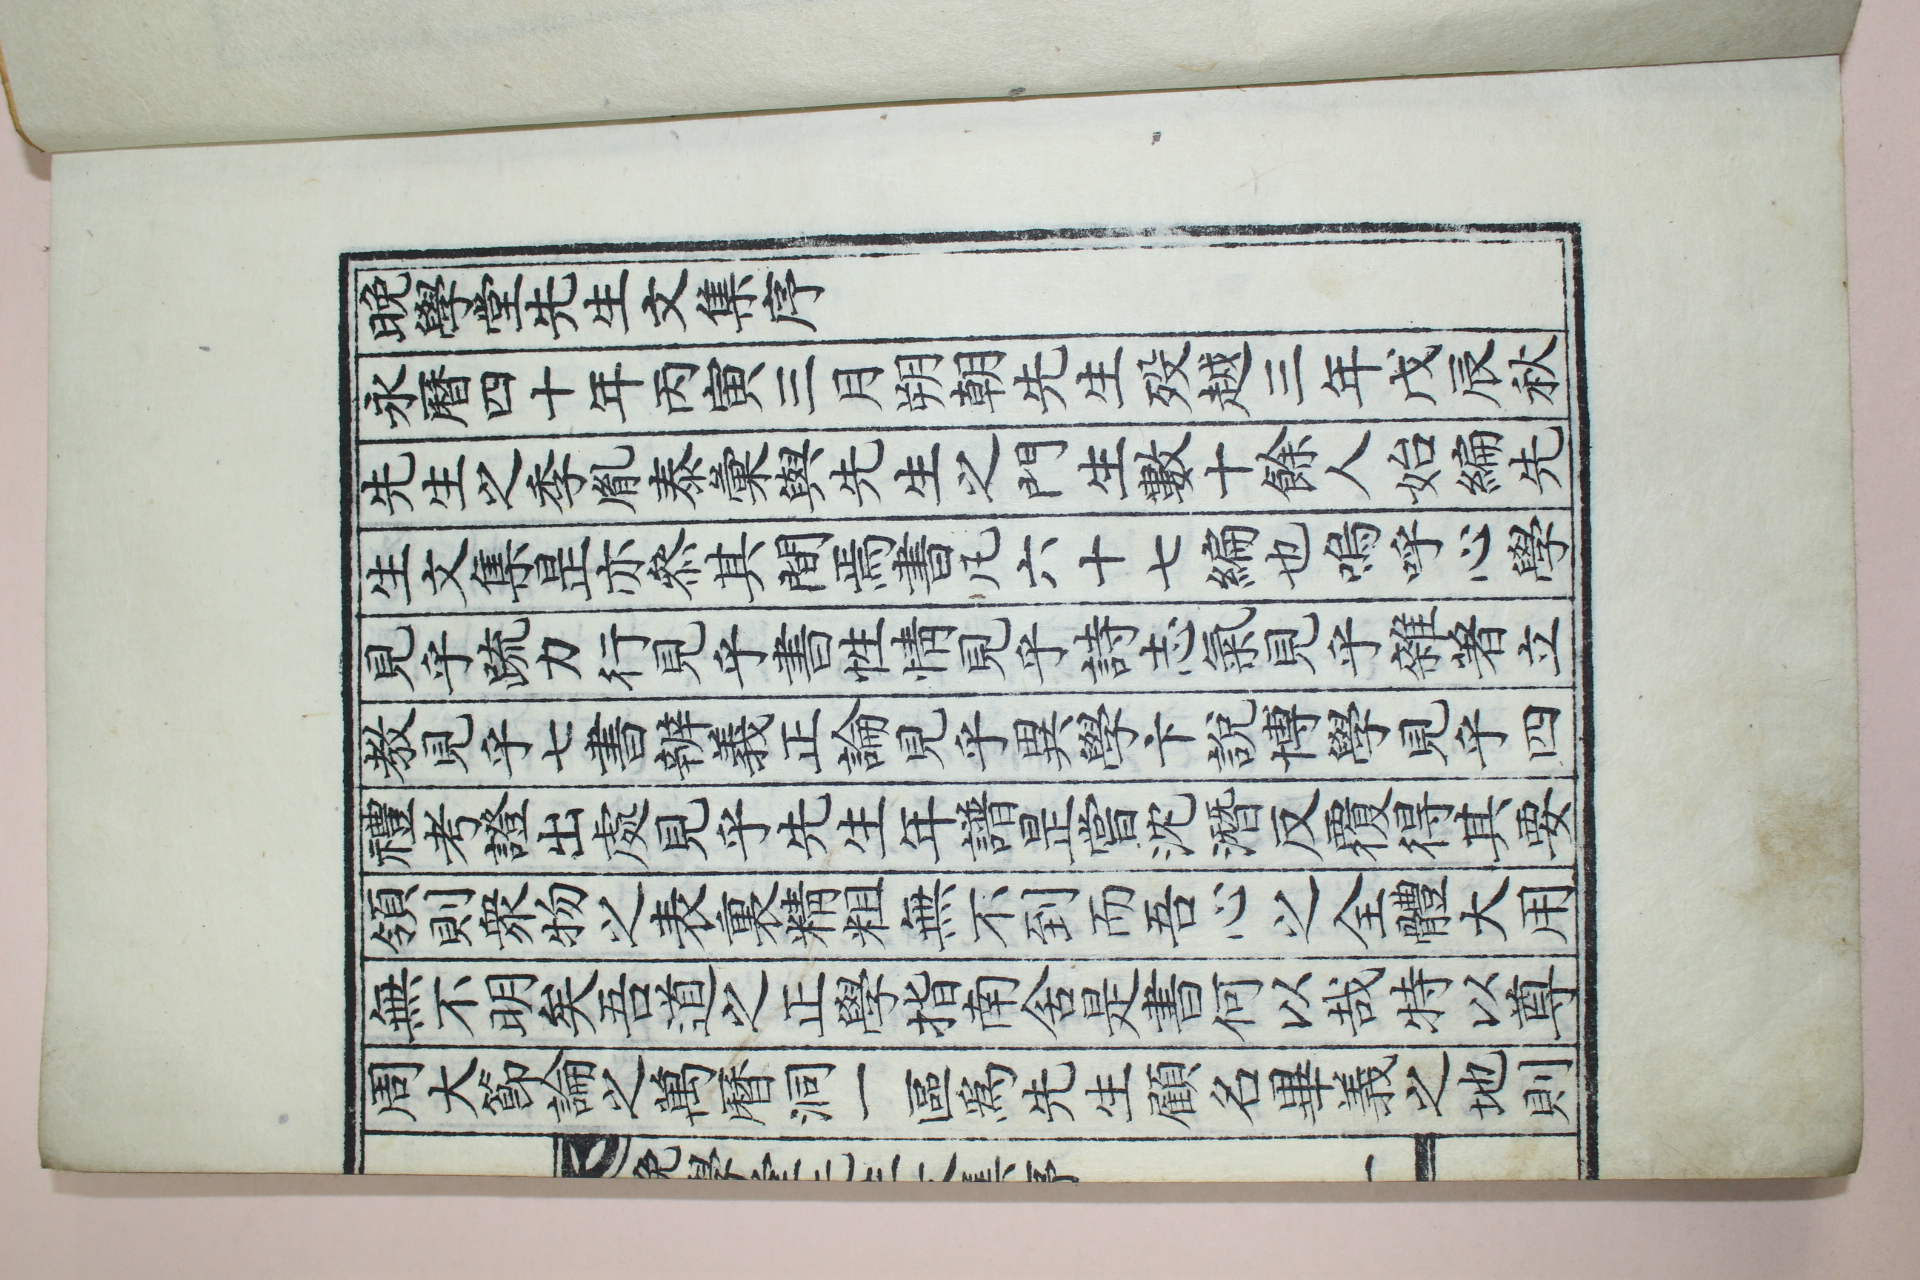 晩學堂先生文集序
永曆四十年丙寅三月朔朝先生歿越三年戊辰秋
先生之季胤泰彙與先生之門生數十餘人始編先
生文集量亦叅其間焉書凡六十七編也嗚呼心學
見乎疏力行見乎書性情見乎詩志氣見乎雜著立
教見乎七書辨義正論見乎異學卞說博學見乎四
禮考證出處見乎先生年譜量嘗沈潛反覆得其要
領則衆物之表裏精粗無不到而吾心之全體大用
無不明矣吾道之正學指南舍是書何以哉特以尊
周大節論之萬曆洞一區爲先生顧名畢義之地則
晩學堂先生文集序 一